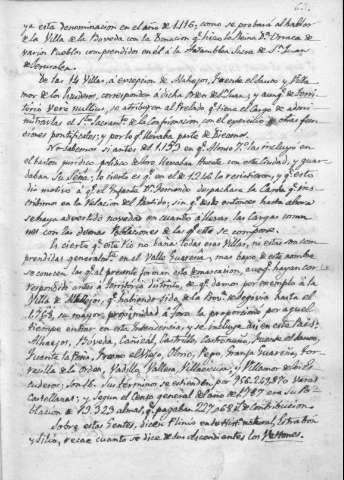 ya esta denominacion en el año de 1116; como se probará al hablar
de la Villa de la Boveda con la Donacion qe hizo la Reina Da Urraca de
varios Pueblos comprendidos en él á la Asamblea Sacra de Sn Juan
de Jerusalen.
De las 14 Villas, á excepcion de Alhaejos, Fuente el Sauco y Villa
mor de los Escuderos, corresponden á dicha Orden de Sn Juan; y aunqe de Terri
torio veré nullius, se atribuyen al Prelado qe tiene el cargo de admi
nistrarles el Sto Sacramto de la Confirmacion con el exercicio de otras funciones
pontificales; y por lo qe llevaba parte de Diezmos.
No sabemos si antes del 1153 en qe Alonso 7o las incluyó en
el baston juridico politico de Toro llevaban Fuente con esta Ciudad, y guar
daban su seña; lo cierto es qe en el de 1244 lo resistieron, y qe esto
dió motivo á qe el Infante Dn Fernando despachara la Carta qe ins
cribimos en la Relacion del Partido; sin qe desde entonces hasta ahora
se haya advertido novedad en cuanto á llevar las cargas comu
nes con las demas Poblaciones de las qe ello se compone.
Es cierto qe este Rio no baña todas esas Villas, ni estan com
prendidas generalmte en el Valle Guareña, mas bajo de este nombre
se conocen las qe al presente forman esta demarcacion, aunqe hayan co
rrespondido antes á Territorio distinto, de qe damos por exemplo á la
Villa de Alhaejos, qe habiendo sido de la Prova de Segovia hasta el
1768, su mayor proximidad á Toro la proporcionó por aquel
tiempo entrar en esta Intendencia, y se incluye hoy en este Partido.
Alhaejos, Boveda, Cañizal, Castrillo, Castronuño, Fuente el Sauco,
Fuente la Peña, Fresno el Viejo, Olmo, Pego, Granja Guareña, Tor
recilla de la Orden, Vadillo, Vallesa, Villaescusa; y Villamor de los Es
cuderos; son los. Su termino se estiende por 756.249.870 varas
Castellanas; y segun el Censo general del año de 1787 era su Po
blacion de 13.329 almas, qe pagaban 227.068 rs de Contribucion.
Sobre estas Gentes, dicen Plinio en su Hista natural, Estrabon
y Silio, recae cuanto se dice de sus ascendientes los Vettones.